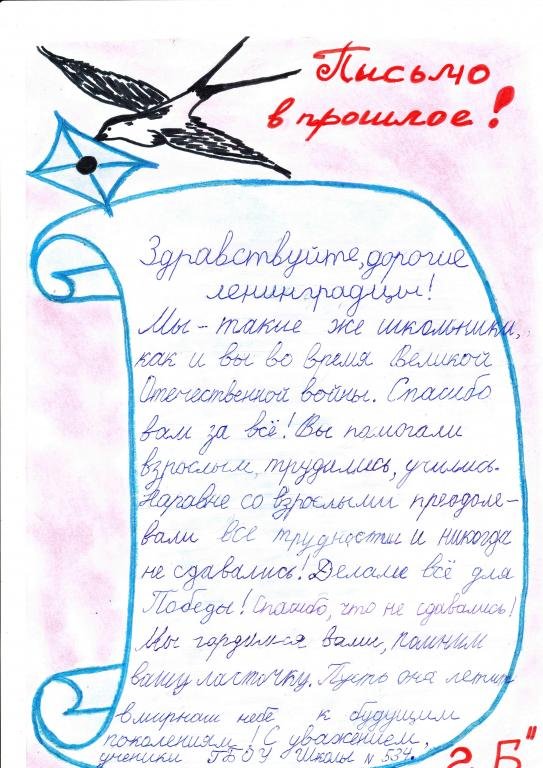 Письмо
в прошлое!
Здравствуйте, дорогие
ленинградцы!
Мы - такие же школьники,
как и вы во время Великой
Отечественной войны. Спасибо
вам за всё! Вы помогали
взрослым, трудились, учились.
Наравне со взрослыми преодоле-
вали все трудности и никогда
не сдавались! Делали всё для
Победы! Спасибо, что не сдавались!
Мы гордимся вами, помним
вашу ласточку. Пусть она летит
в мирном небе к будущим
поколениям! С уважением,
ученики ГБОУ Школы №534.
2„Б"